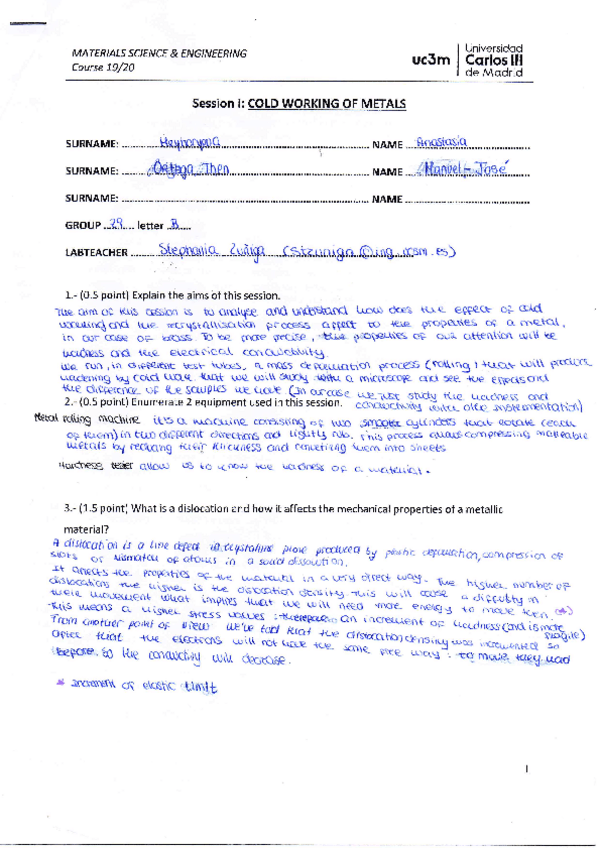 MATERIALS SCIENCE & ENGINEERING
Course 19/20
uc3m Universidad Carlos III de Madrid
Session I: COLD WORKING OF METALS
SURNAME: NAME Anastasia
SURNAME: Ortega Then NAME Manuel-José
SURNAME: NAME
GROUP 29 letter B
LABTEACHER Stephania Zuñiga
1.- (0.5 point) Explain the aims of this session.
The aim of this session is to analyse and understand how does the effect of cold
working and the recrystallisation process affect to the properties of a metal,
in our case of brass. To be more precise, the properties of our attention will be
hardness and the electrical conductivity.
We run, in different test tubes, a mass deformation process (rolling) that will produce
hardening by cold work that we will study with a microscope and see the effects and
the difference of the samples we have (in our case we just study the hardness and
conductivity with other instrumentation)
2.- (0.5 point) Enumerate 2 equipment used in this session.
Metal rolling machine it's a machine consisting of two cylinders that rotate (each
of them) in two different directions and tightly rub. This process allows compressing malleable
metals by reducing their thickness and converting them into sheets
Hardness tester allow us to know the hardness of a material.
3.- (1.5 point) What is a dislocation and how it affects the mechanical properties of a metallic
material?
A dislocation is a line defect in crystalline produced by plastic deformation, compression of
or mismatch of atoms in a solid dissolution.
It affects the properties of the material in a very direct way. The higher number of
dislocations the higher is the dislocation density. This will cause a difficulty in
movement what implies that we will need more energy to move them (*)
This means a higher stress values: therefore an increment of hardness (and is more fragile)
From another point of view we've told that the dislocation density was incremented so
after that the electrons will not have the same free way to move they had
before. So the conductivity will decrease.
* Increment of elastic limit
1